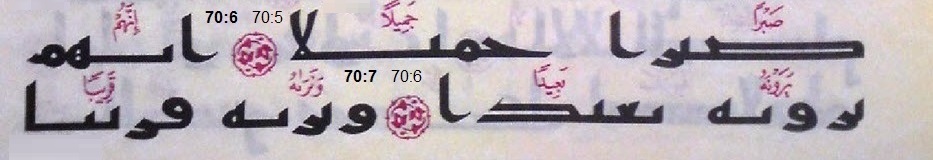 صَبْرًا جَمِيلًا 70:5 70:6 إِنَّهُمْ
صبرا جميلا انهم
يَرَوْنَهُ بَعِيدًا 70:6 70:7 وَنَرَىٰهُ قَرِيبًا
يرونه بعيدا ونريه قريبا